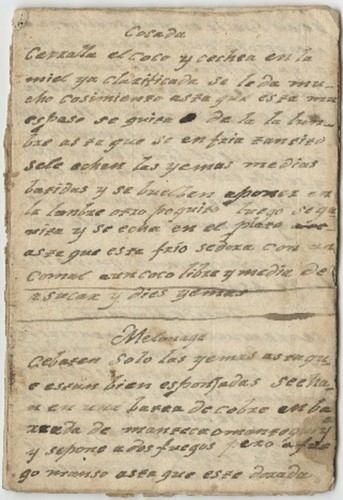 Cocada
Cerralla el coco y echea en la
miel ya clarificada se le da mu-
cho cosimiento asta que esta mui
espeso se quita de la lum-
bre asta que se enfria tantito
sele echan las yemas medias
batidas y se buelben aponer en
la lumbre otro poquito luego se qu
ita y se echa en el plato
asta que este frio sedora con un
comal aun coco libre y media de
asucar y dies yemas
Cebaten solo las yemas asta qu
e estan bien esponjadas seecha
n en una basea de cobre enba
rrada de manteca omantequilla
y sepone ados fuegos pero a fue
go manso asta que este dorada